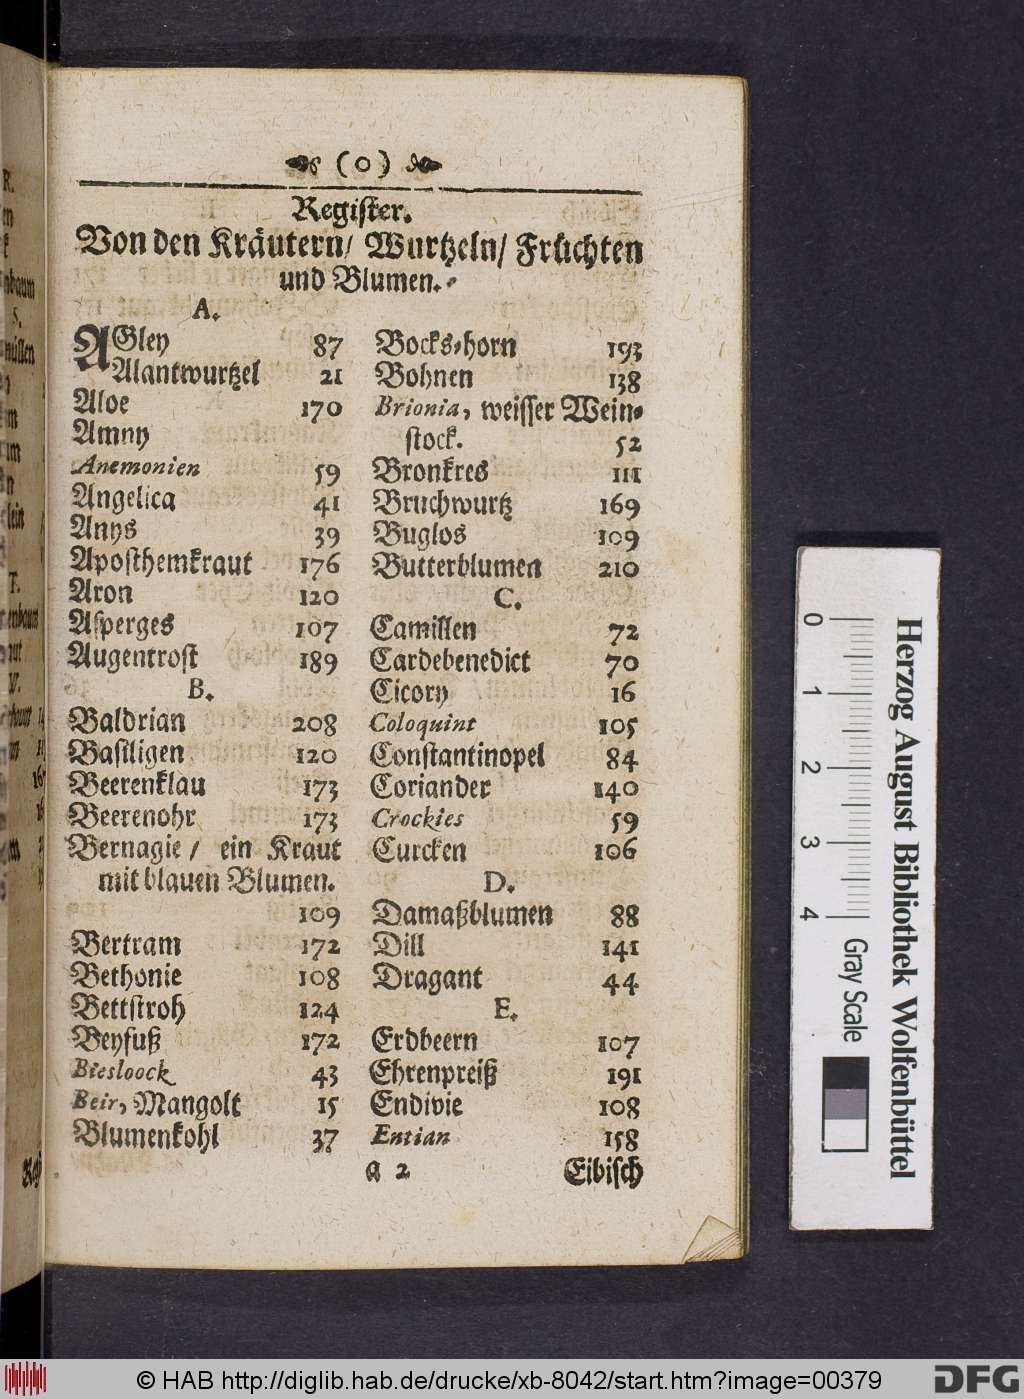 (o)
Register.
Von den Kräutern/ Wurtzeln/ Früchten
und Blumen.
A.
AGley 87
Alantwurtzel 21
Aloe 170
Amny
Anemonien 59
Angelica 41
Anys 39
Aposthemkraut 176
Aron 120
Asperges 107
Augentrost 189
B.
Baldrian 208
Basiligen 120
Beerenklau 173
Beerenohr 173
Bernagie / ein Kraut
mit blauen Blumen.
109
Bertram 172
Bethonie 108
Bettstroh 124
Beyfuß 172
Biesloock 43
Beir, Mangolt 15
Blumenkohl 37
Bocks-horn 193
Bohnen 138
Brionia, weisser Wein-
stock. 52
Bronkres 111
Bruchwurtz 169
Buglos 109
Butterblumen 210
C.
Camillen 72
Cardebenedict 70
Cicory 16
Coloquint 105
Constantinopel 84
Coriander 140
Crockies 59
Curcken 106
D.
Damaßblumen 88
Dill 141
Dragant 44
E.
Erdbeern 107
Ehrenpreiß 191
Endivie 108
Entian 158
a 2 Eibisch
Herzog August Bibliothek Wolfenbüttel
0 1 2 3 4 Gray Scale
© HAB http://diglib.hab.de/drucke/xb-8042/start.htm?image=00379
DFG